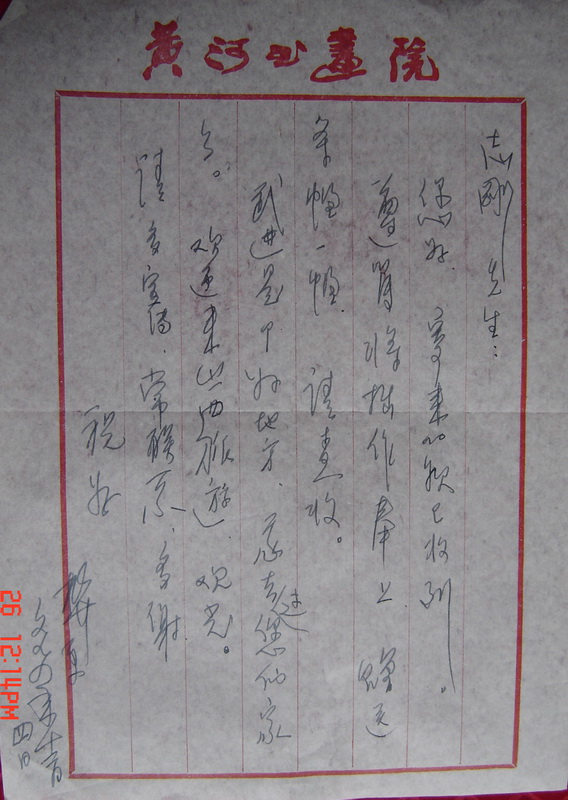 黄河书画院
志刚先生：
您好。寄来的款已收到。
遵嘱将拙作奉上 赠送
条幅一幅 请查收。
武进是个好地方。
欢迎来山西旅游、观光。
请多宣传、常联系、多谢
祝好
26 12:14PM